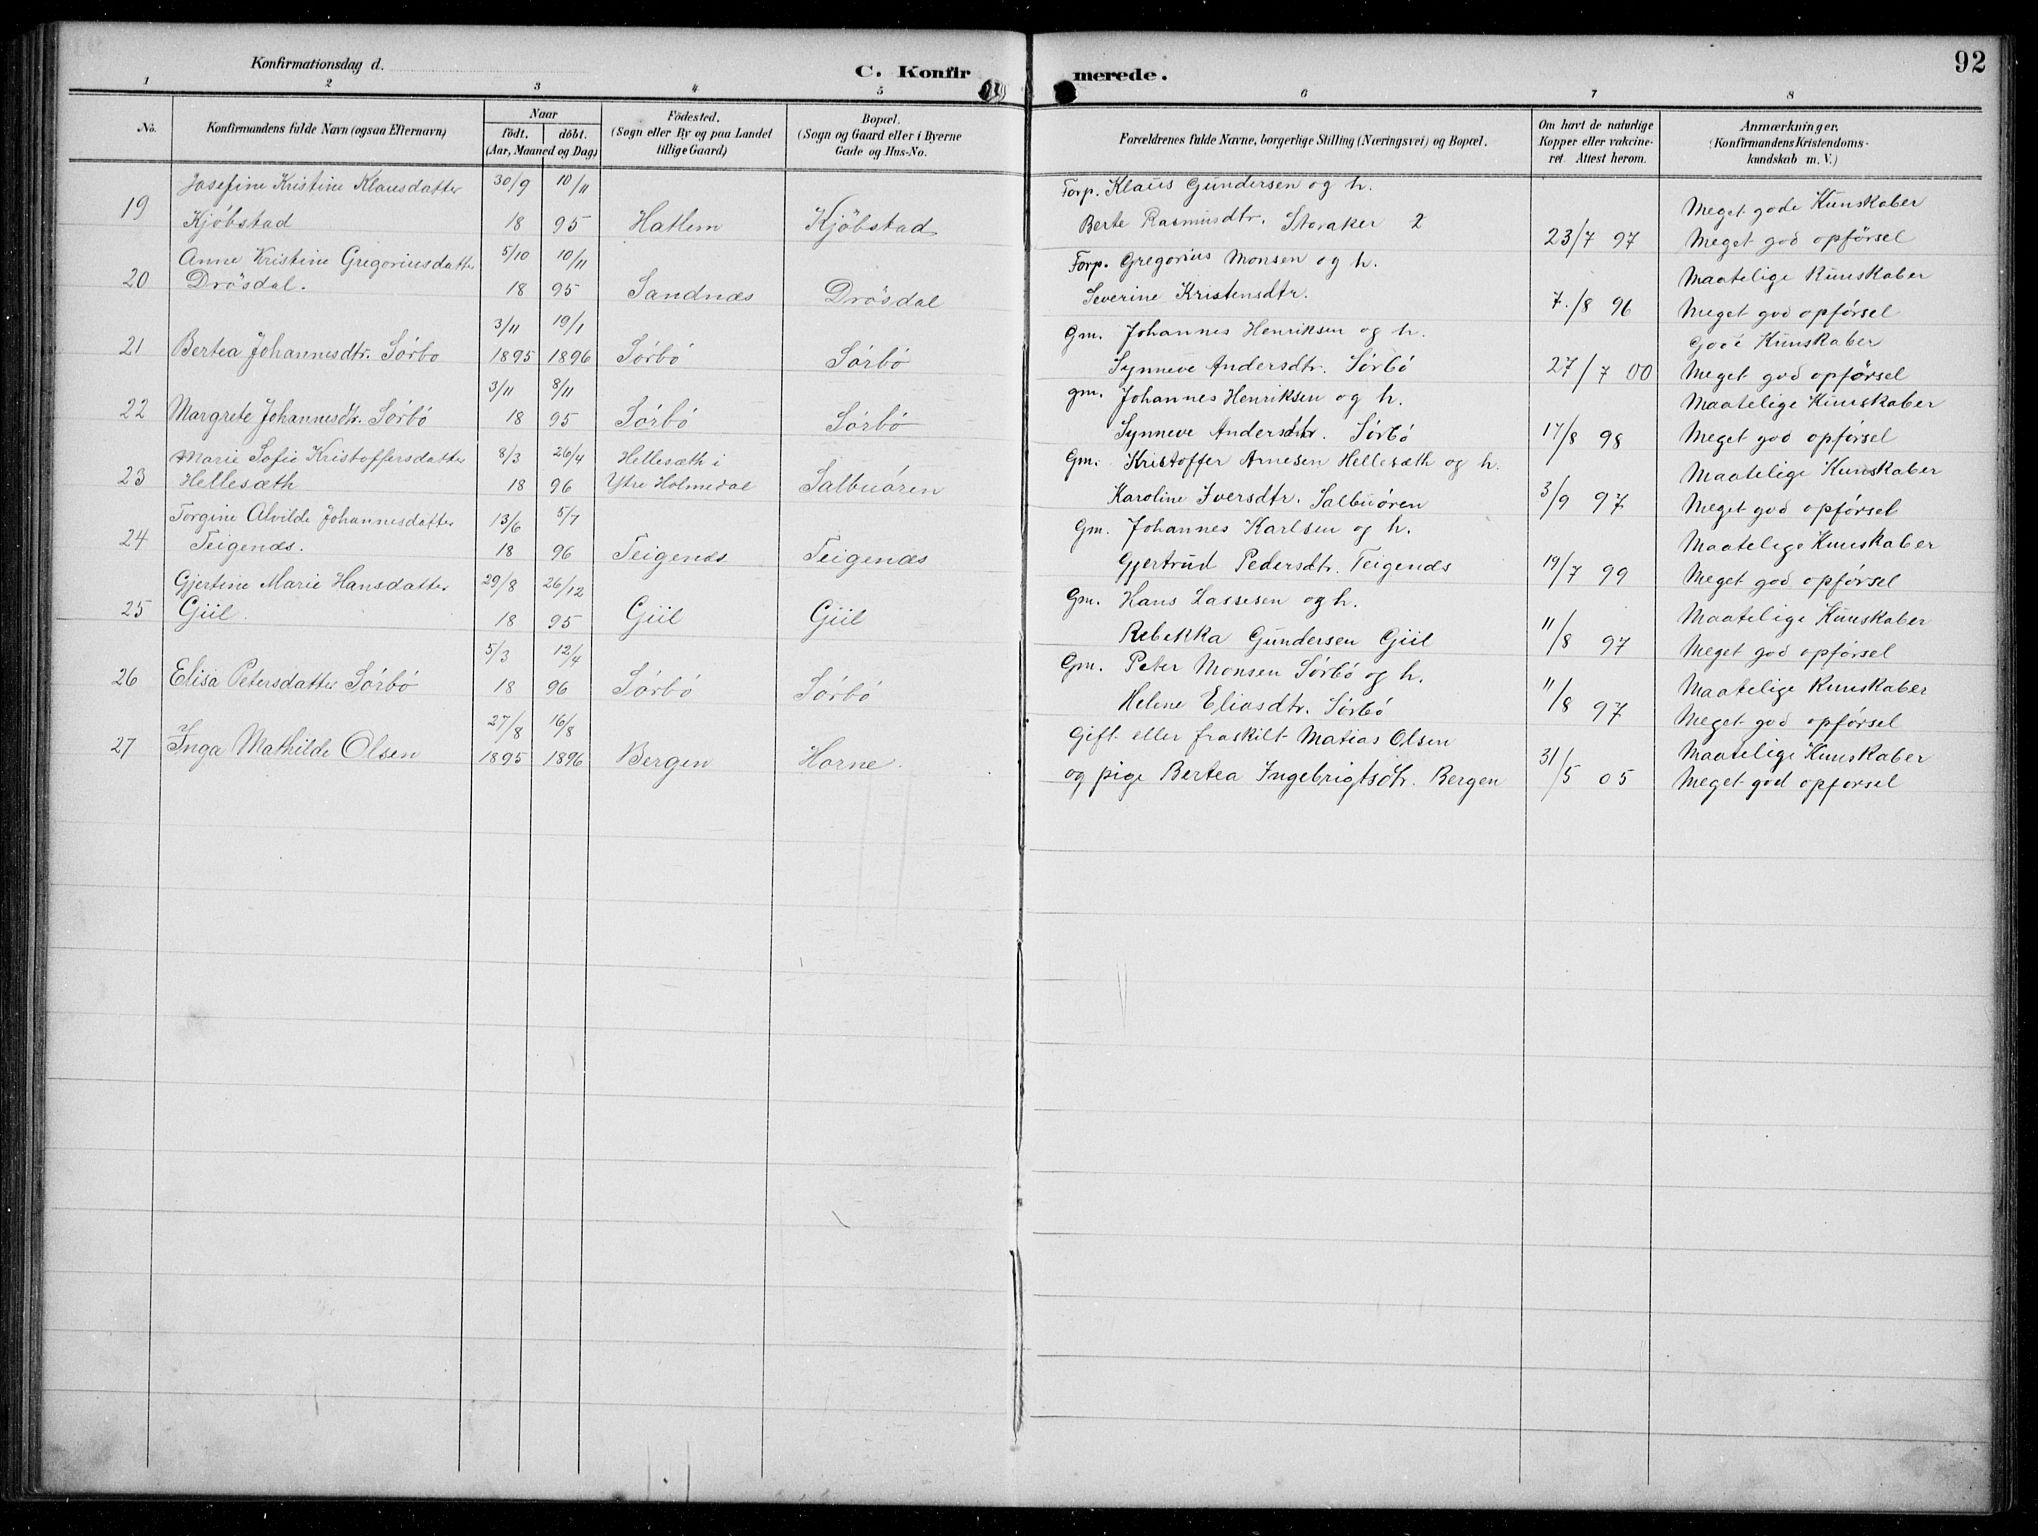 92
Konfirmationsdag d.
C. Konfirmerede.
1 2 3 4 5 6 7 8
No.
Konfirmandens fulde Navn (ogsaa Efternavn)
Naar
födt. döbt.
(Aar, Maaned og Dag)
Födested.
(Sogn eller By og paa Landet
tillige Gaard)
Bopæl.
(Sogn og Gaard eller i Byerne
Gade og Hus-No.
Forældrenes fulde Navne, borgerlige Stilling (Næringsvei) og Bopæl.
Om havt de naturlige
Kopper eller vakcine-
ret. Attest herom.
Anmærkninger.
(Konfirmandens Kristendoms-
kundskab m. V.)
Josefine Kristine Klausdatter 30/9 10/11 Forp. Klaus Gundersen og h. Meget gode Kunskaber
19 Kjöbstad 18 95 Hatlem Kjöbstad Berte Rasmusdtr. Storaker 2 23/7 97 Meget god opförsel
Anne Kristine Gregoriusdatter 5/10 10/11 Forp. Gregorius Monsen og h. Maatelige Kunskaber
20 Drösdal. 18 95 Sandnæs Drösdal Severine Kristensdtr. 7./8 96 Meget god opförsel
3/11 19/1 Gm. Johannes Henriksen og h. Gode Kunskaber
21 Bertea Johannesdtr. Sörbö 1895 1896 Sörbö Sörbö Synneve Andersdtr. Sörbö 27/7 00 Meget god opförsel
3/11 8/11 gm. Johannes Henriksen og h. Maatelige Kunskaber
22 Margrete Johannesdtr. Sörbö 18 95 Sörbö Sörbö Synneve Andersdtr. Sörbö 17/8 98 Meget god opförsel
Marie Sofie Kristoffersdatter 8/3 26/4 Hellesæth i Gm. Kristoffer Arnesen Hellesæth og h. Maatelige Kunskaber
23 Hellesæth 18 96 Ytre Holmedal Salbuören Karoline Iversdtr. Salbuören 3/9 97 Meget god opförsel
Torgine Alvilde Johannesdatter 13/6 5/7 Gm. Johannes Karlsen og h. Maatelige Kunskaber
24 Teigenæs. 18 96 Teigenæs Teigenæs Gjertrud Pedersdtr. Teigenæs 19/7 99 Meget god opförsel
Gjertine Marie Hansdatter 29/8 26/12 Gm. Hans Lassesen og h. Maatelige Kunskaber
25 Giil. 18 95 Giil Giil Rebekka Gundersen Giil 11/8 97 Meget god opförsel
5/3 12/4 Gm. Peter Monsen Sörbö og h. Maatelige Kunskaber
26 Elisa Petersdatter Sörbö 18 96 Sörbö Sörbö Helene Eliasdtr. Sörbö 11/8 97 Meget god opförsel
27/8 16/8 Gift eller fraskilt Matias Olsen Maatelige Kunskaber
27 Inga Mathilde Olsen 1895 1896 Bergen Horne. og pige Bertea Ingebrigtsdtr. Bergen 31/5 05 Meget god opförsel